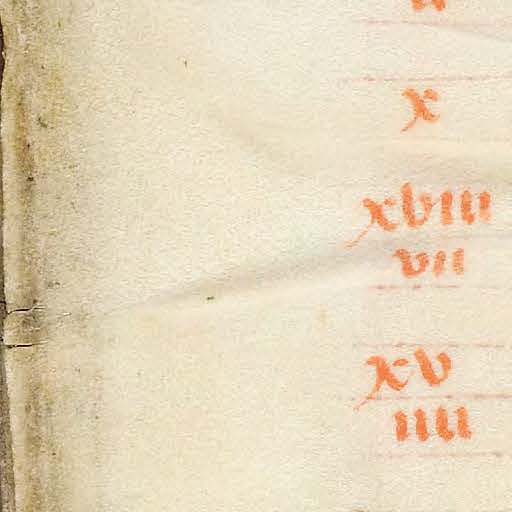 x
xviii
vii
xv
iiii